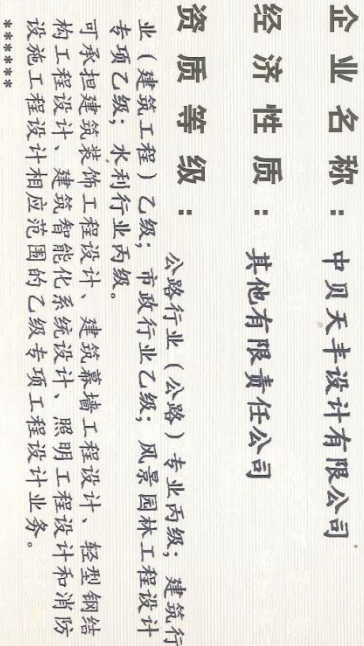 企业名称：中贝天丰设计有限公司
经济性质：其他有限责任公司
资质等级：公路行业（公路）专业丙级；建筑行
业（建筑工程）乙级；市政行业乙级；风景园林工程设计
专项乙级；水利行业丙级。
可承担建筑装饰工程设计、建筑幕墙工程设计、轻型钢结
构工程设计、建筑智能化系统设计、照明工程设计和消防
设施工程设计相应范围的乙级专项工程设计业务。
******